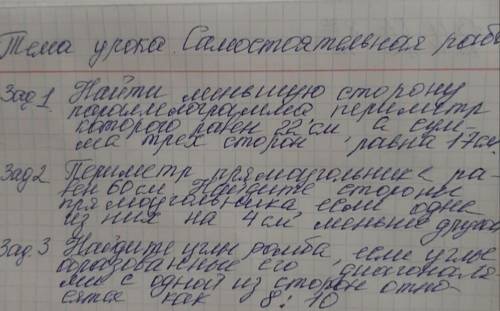 Тема урока. Самостоятельная рабо
Зад 1 Найти меньшую сторону
параллелограмма периметр
которого равен 22 см, а сум-
ма трех сторон равна 17см
Зад 2 Периметр прямоугольника ра-
вен 60см. Найдите стороны
прямоугольника если одна
из них на 4 см меньше другой
Зад. 3 Найдите углы ромба, если углы
образованные его диагоналя-
ми с одной из сторон отно-
сятся как 8:10